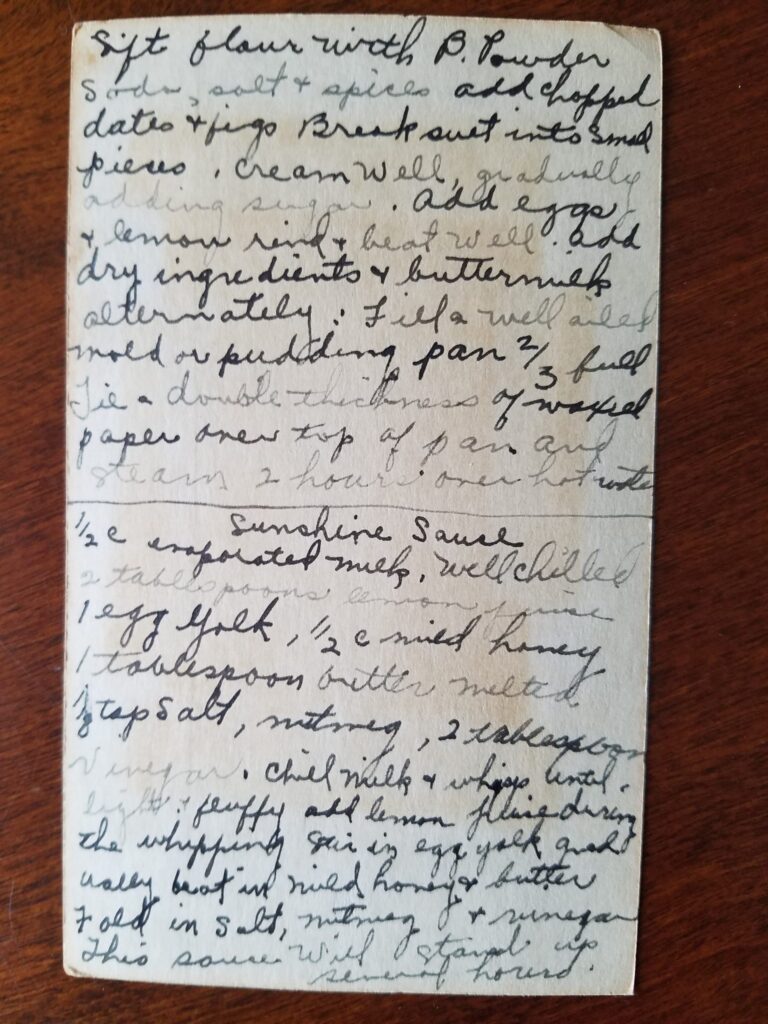 Sift flour with B. Powder
Soda, salt & spices add chopped
dates & figs Break suet into small
pieces. Cream Well, gradually
adding sugar. Add eggs
& lemon rind & beat well. Add
dry ingredients & buttermilk
alternately: Fill a well oiled
mold or pudding pan 2/3 full
Tie a double thickness of waxed
paper over top of pan and
steam 2 hours over hot water
Sunshine Sause
1/2 c evaporated milk, well chilled
2 tablespoons lemon juise
1 egg yolk, 1/2 c mild honey
1 tablespoon butter melted
1/8 tsp Salt, nutmeg, 2 tablespoon
Vinegar. Chill milk & whipp until
light & fluffy add lemon juise during
the whipping Stir in egg yolk grad
ually beat in mild honey & butter
Fold in Salt, nutmeg & vinegar
This sause Will stand up
several hours.